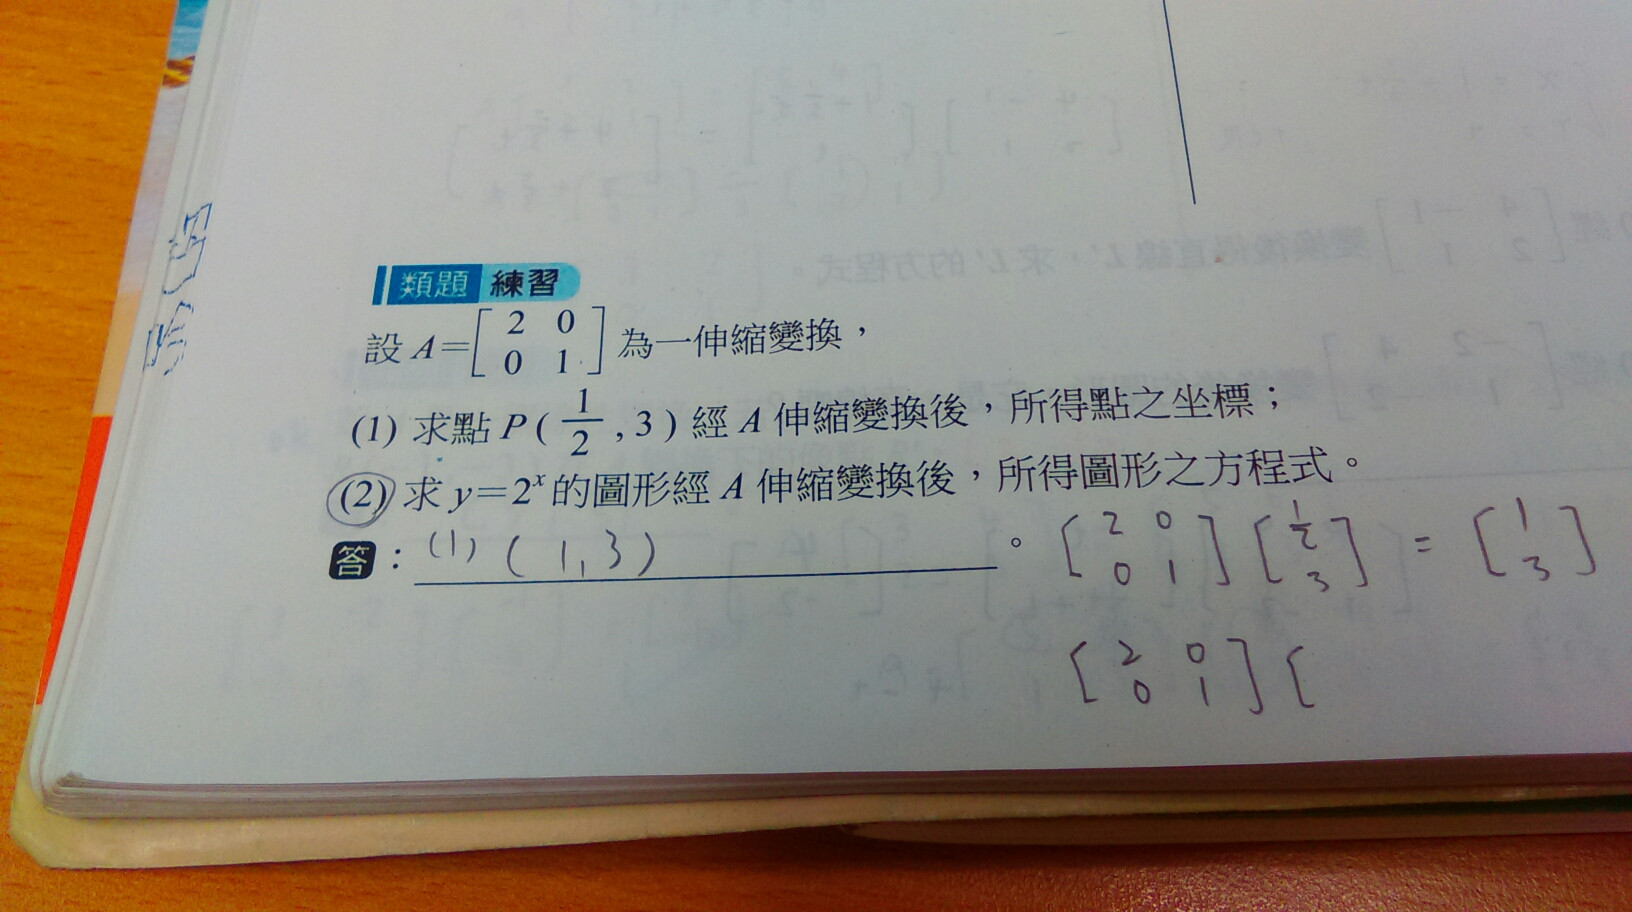 類題 練習
設 A=[2 0
0 1] 為一伸縮變換，
(1) 求點 P(1/2, 3) 經 A 伸縮變換後，所得點之坐標；
(2) 求 y=2ˣ 的圖形經 A 伸縮變換後，所得圖形之方程式。
答：(1) (1,3)。
[2 0
0 1] [1/2
3] = [1
3]
[2 0
0 1] [